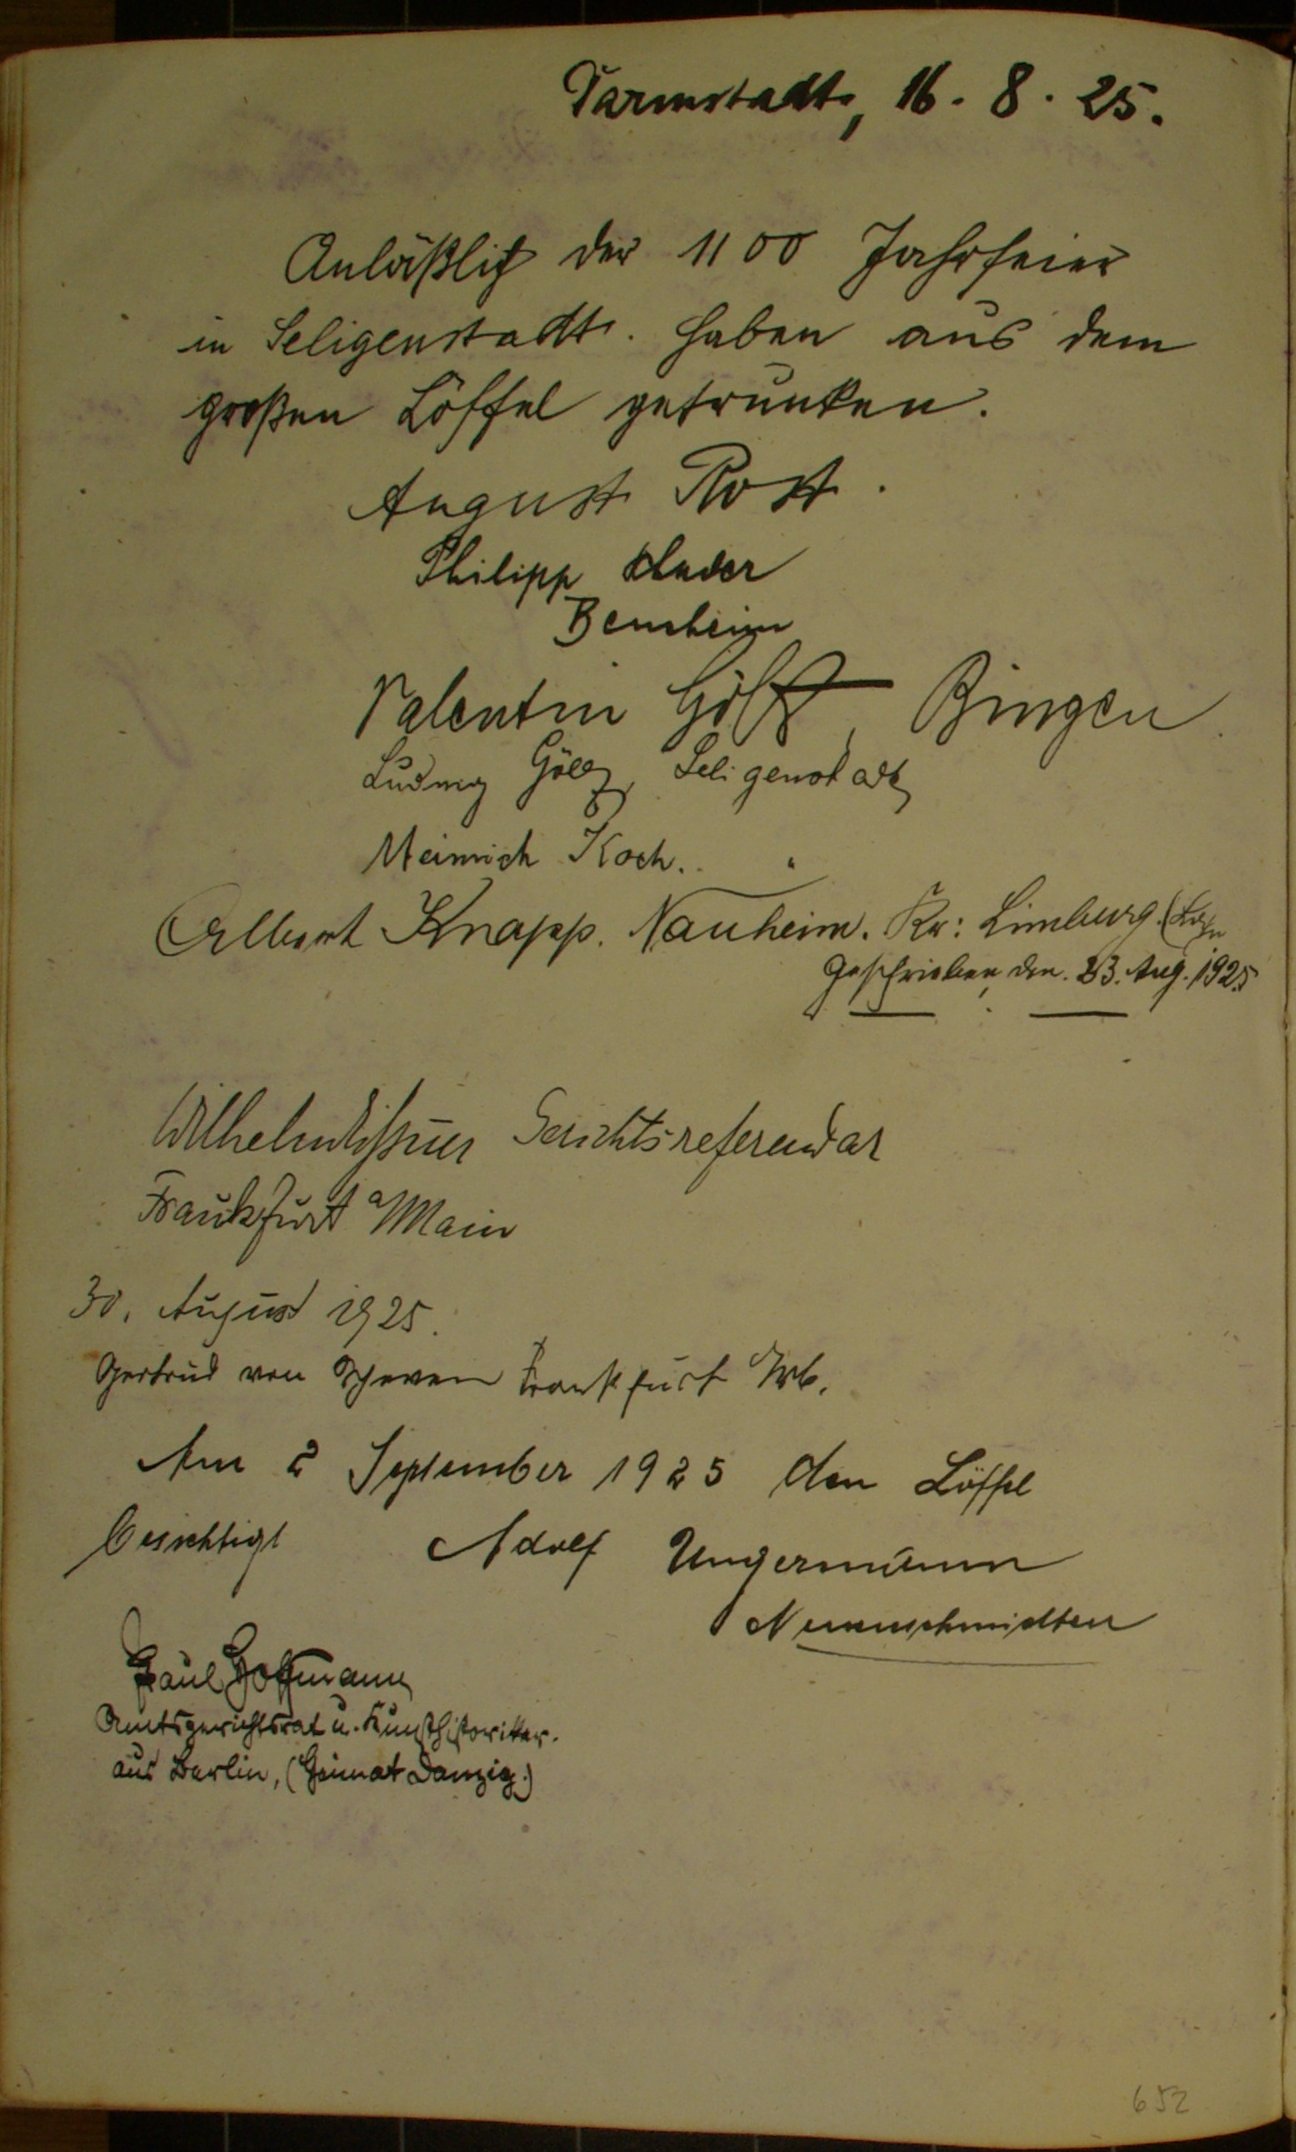 Darmstadt, 16. 8. 25.
Anläßlich der 1100 Jahrfeier
in Seligenstadt. haben aus dem
großen Löffel getrunken.
August Rost.
Philipp
Bensheim
Valentin Bingen
Ludwig Seligenstadt
Heinrich Koch. "
Albert Knapp. Nauheim. Kr: Limburg (Lahn
Geschrieben den. 23. Aug. 1925
Wilhelm Gerichtsreferendar
Frankfurt a/Main
30. August 1925.
Gertrud von Scheven Frankfurt
Am 2 September 1925 den Löffel
besichtigt Adolf Ungermann
Paul Hoffmann
Amtsgerichtsrat u. Kunsthistoriker.
aus Berlin, (Heimat Danzig.)
652